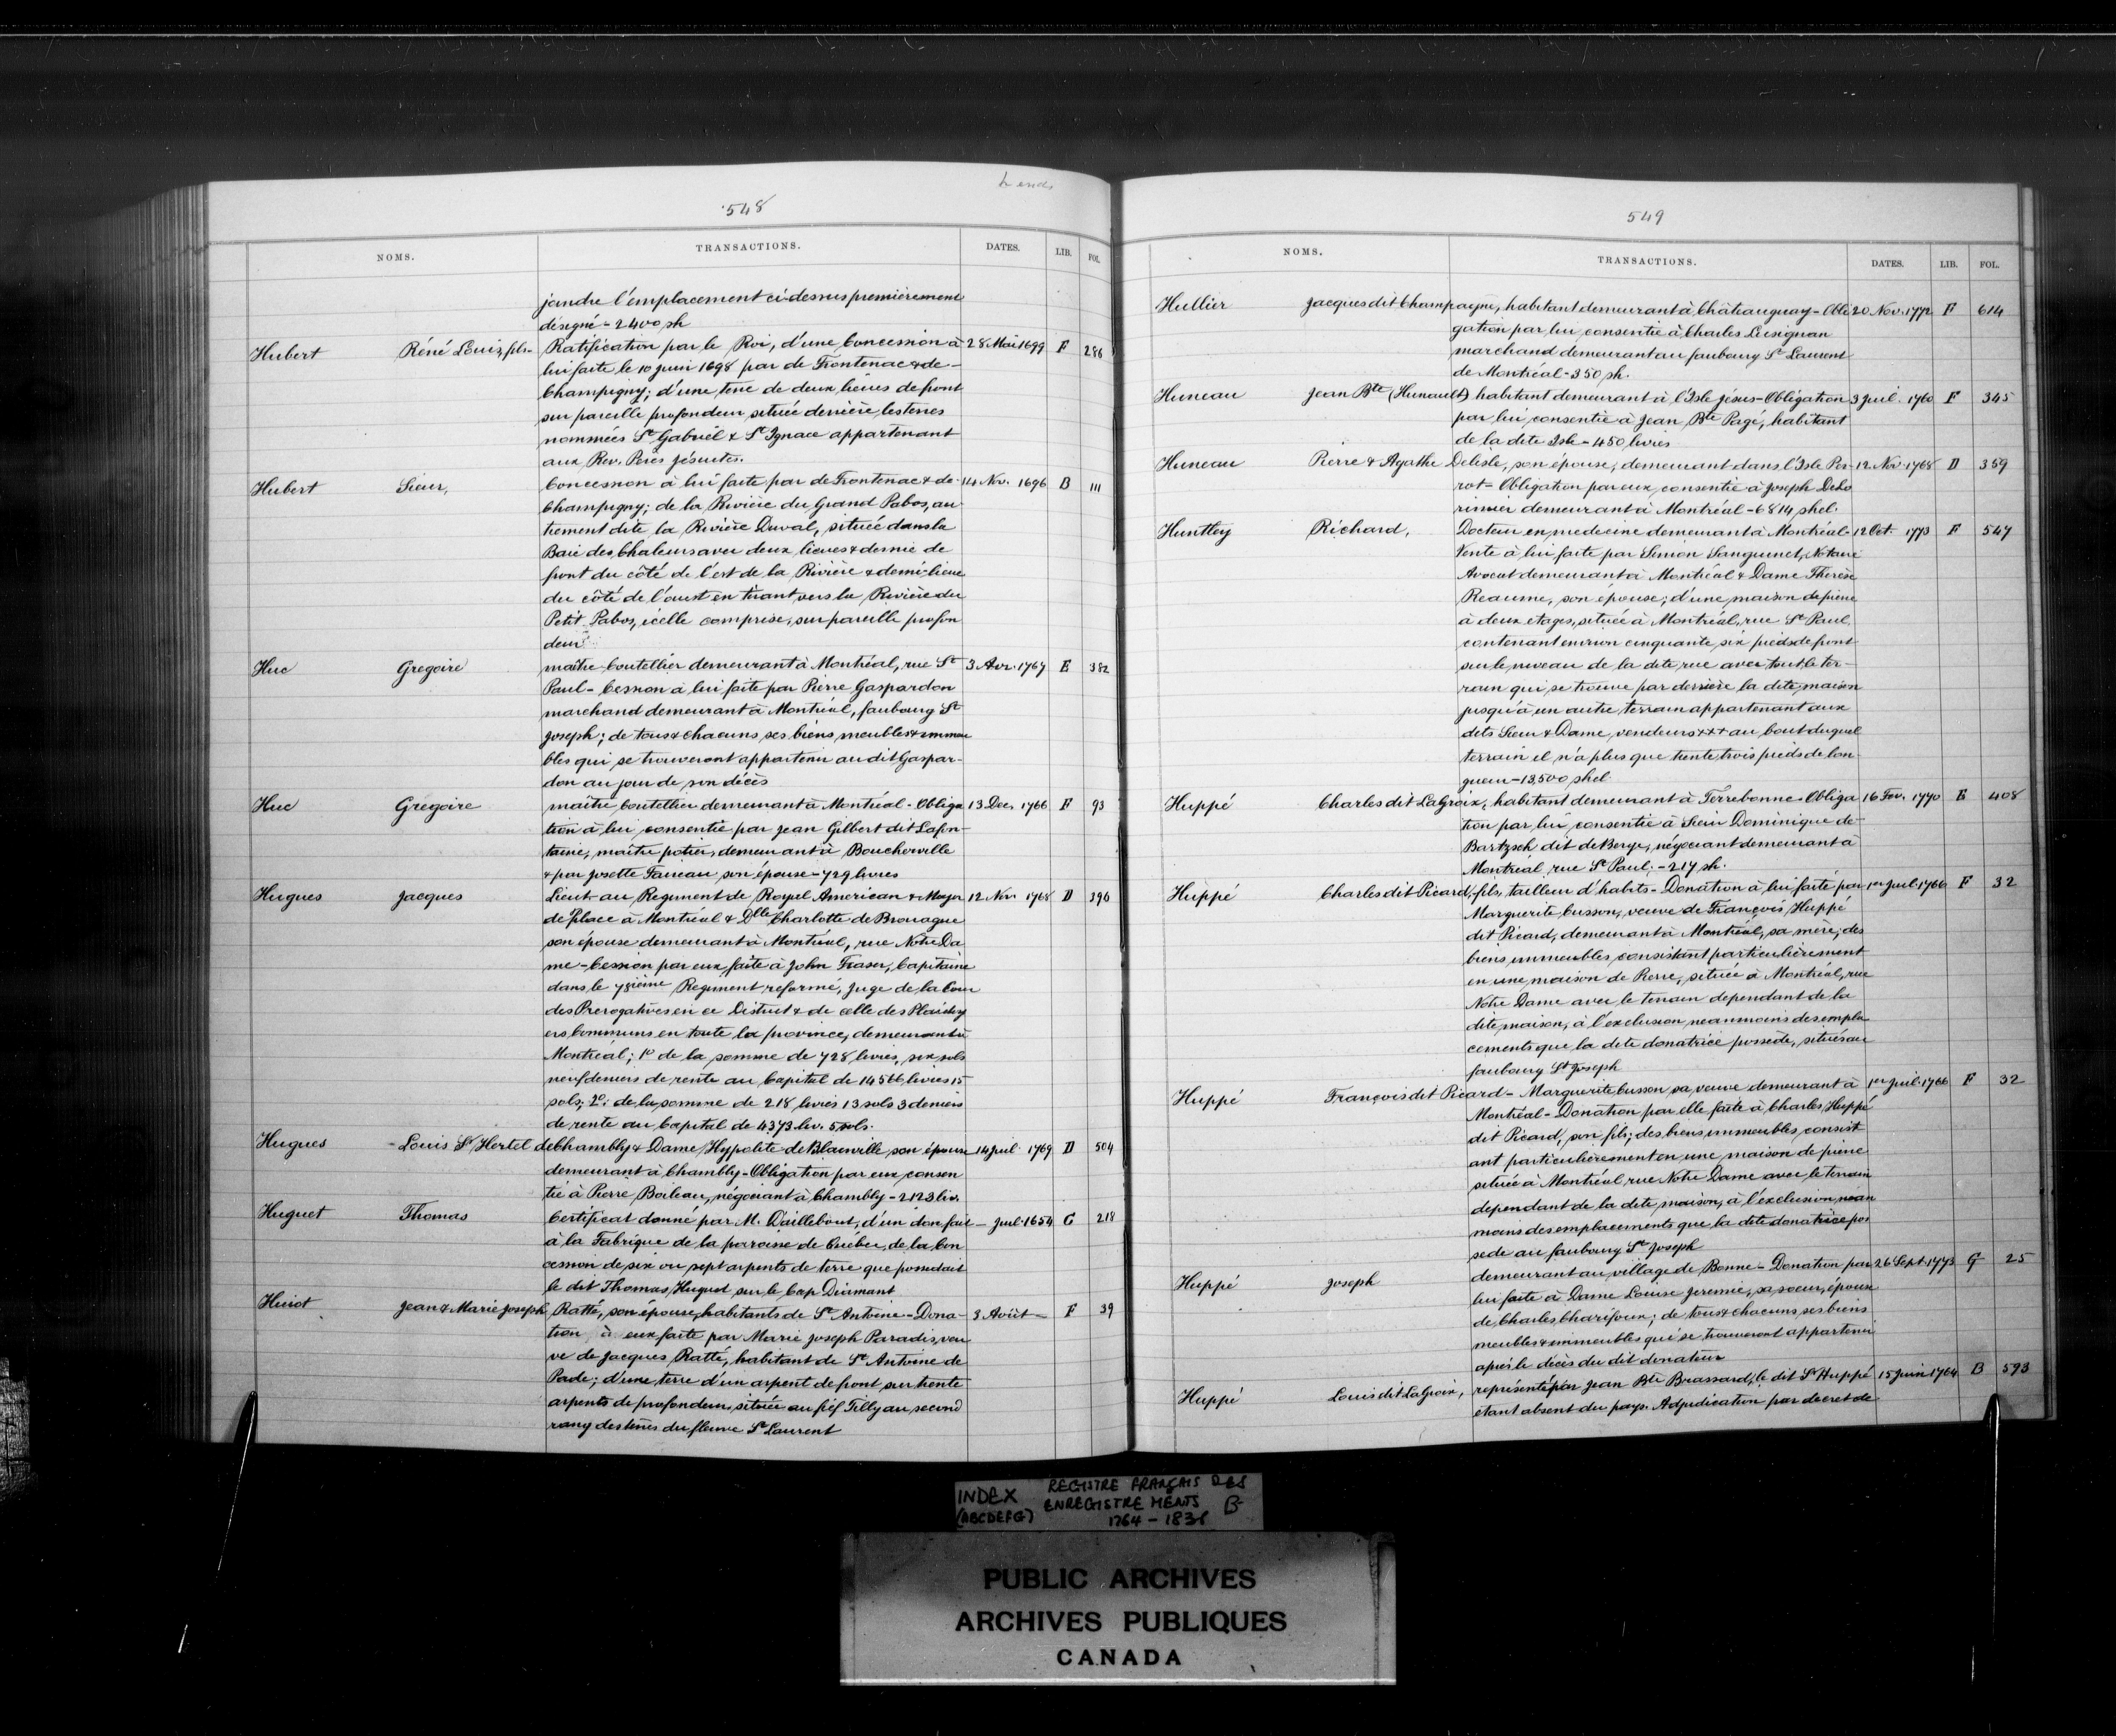 h ends
548
NOMS. TRANSACTIONS. DATES. LIB. FOL.
joindre l'emplacement ci-dessus premièrement
désigné - 2400 sh
Hubert Réné Louis, fils - Ratification par le Roi, d'une Concession à 28 Mai 1699 F 286
lui faite le 10 juin 1698 par de Frontenac & de
Champigny; d'une terre de deux lieues de front
sur pareille profondeur située derrière les terres
nommées St Gabriel & St Ignace appartenant
aux Rev. Peres Jésuites.
Hubert Sieur, Concession à lui faite par de Frontenac & de 14 Nov. 1696 B 111
Champigny; de la Rivière du Grand Pabos, au
trement dite la Rivière Duval, située dans la
Baie des Chaleurs avec deux lieues & demie de
front du côté de l'est de la Rivière & demi-lieue
du côté de l'ouest en tirant vers la Rivière du
Petit Pabos, icelle comprise, sur pareille profon
deur
Huc Gregoire maître coutellier demeurant à Montréal, rue St 3 Avr. 1767 E 382
Paul - Cession à lui faite par Pierre Gaspardon
marchand demeurant à Montréal, faubourg St
Joseph; de tous & chacuns ses biens meubles & immeu
bles qui se trouveront appartenir au dit Gaspar-
don au jour de son décès
Huc Gregoire maître coutellier demeurant à Montréal - Obliga 13 Dec. 1766 F 93
tion à lui consentie par Jean Gilbert dit Lafon-
taine, maître potier, demeurant à Boucherville
& par Josette Fauteau son épouse - 729 livres
Hugues Jacques Lieut- au Regiment de Royal American & Major 12 Nov 1768 D 396
de Place à Montréal & Dlle Charlotte de Brouague
son épouse demeurant à Montréal, rue Notre Da
me - Cession par eux faite à John Fraser, Capitaine
dans le 78ième Regiment reformé, Juge de la Cour
des Prerogatives en ce District & de celle des Plaidoy
ers Communs en toute la province, demeurant à
Montréal; 1o de la somme de 728 livres, six sols
neuf deniers de rente au Capital de 14566 livres 15
sols; 2o: de la somme de 218 livres 13 sols 3 deniers
de rente au Capital de 4373 liv. 5 sols.
Hugues - Louis St Hertel de Chambly & Dame Hypolite de Blainville son épouse 14 juil 1769 D 504
demeurant à Chambly - Obligation par eux consen
tie à Pierre Boileau, négociant à Chambly - 2123 liv.
Huguet Thomas Certificat donné par M. Daillebout, d'un don fait - Jul. 1654 C 218
à la Fabrique de la paroisse de Québec, de la Con
cession de six ou sept arpents de terre que possedait
le dit Thomas Huguet sur le Cap Diamant
Huiot Jean & Marie Joseph Ratté, son épouse, habitants de St Antoine - Dona- 3 Août - F 39
tion à eux faite par Marie Joseph Paradis, veu
ve de Jacques Ratté, habitant de St Antoine de
Pade; d'une terre d'un arpent de front sur trente
arpents de profondeur, située au fief Tilly au second
rang des terres du fleuve St Laurent
549
NOMS. TRANSACTIONS. DATES. LIB. FOL.
Hullier Jacques dit Champagne, habitant demeurant à Châteauguay - Obli 20 Nov. 1772 F 614
gation par lui consentie à Charles Lusignan
marchand demeurant au faubourg St Laurent
de Montréal - 350 sh.
Huneau Jean Bte (Hunault) habitant demeurant à l'Isle Jésus - Obligation 3 juil. 1760 F 345
par lui consentie à Jean Bte Pagé, habitant
de la dite Isle - 450 livres
Huneau Pierre & Agathe Delisle, son épouse, demeurant dans l'Isle Per- 12 Nov. 1768 D 359
rot - Obligation par eux consentie à Joseph DeLo
rimier demeurant à Montréal - 6814 shel.
Huntley Richard, Docteur en medecine demeurant à Montréal - 12 Oct. 1773 F 547
Vente à lui faite par Simon Sanguinet, Notaire
Avocat demeurant à Montréal & Dame Therèse
Reaume, son épouse; d'une maison de pierre
à deux etages, située à Montréal, rue St Paul,
contenant environ cinquante, six pieds de front
sur le niveau de la dite rue avec tout le ter-
rain qui se trouve par derrière la dite maison
jusqu'à un autre terrain appartenant aux
dits Sieur & Dame, vendeurs x x x au bout duquel
terrain il n'a plus que trente, trois pieds de lon
gueur - 13,500 shel.
Huppé Charles dit LaGroix, habitant demeurant à Terrebonne - Obliga 16 Fev. 1770 E 408
tion par lui consentie à Sieur Dominique de
Bartzsch dit de Berge, négociant demeurant à
Montréal rue St Paul. - 217 sh.
Huppé Charles dit Picard, fils, tailleur d'habits - Donation à lui faite par 1er Juil. 1766 F 32
Marguerite Cusson, veuve de François Huppé
dit Picard, demeurant à Montréal, sa mère; des
biens immeubles consistant particulièrement
en une maison de Pierre, située à Montréal, rue
Notre Dame avec le terrain dependant de la
dite maison, à l'exclusion neanmoins des empla
cements que la dite donatrice possède, situés au
faubourg St Joseph
Huppé François dit Picard - Marguerite Cusson sa veuve demeurant à 1er juil. 1766 F 32
Montréal - Donation par elle faite à Charles Huppé
dit Picard, son fils; des biens immeubles consist
ant particulièrement en une maison de pierre
située à Montréal rue Notre Dame avec le terrain
dependant de la dite maison, à l'exclusion nean
moins des emplacements que la dite donatrice pos
sede au faubourg St Joseph
Huppé Joseph demeurant au village de Bonne - Donation par 26 Sept. 1773 G 25
lui faite à Dame Louise Jeremie, sa soeur, épouse
de Charles Charifoux; de tous & chacuns ses biens
meubles & immeubles qui se trouveront appartenir
après le décès du dit donateur
Huppé Louis dit LaGroix, représenté par Jean Bte Brassard, le dit Sr Huppé 15 Juin 1764 B 593
étant absent du pays. Adjudication par decret de
INDEX (ABCDEFG) REGISTRE FRANÇAIS DES
ENREGISTREMENTS B-
1764 - 1836
PUBLIC ARCHIVES
ARCHIVES PUBLIQUES
CANADA